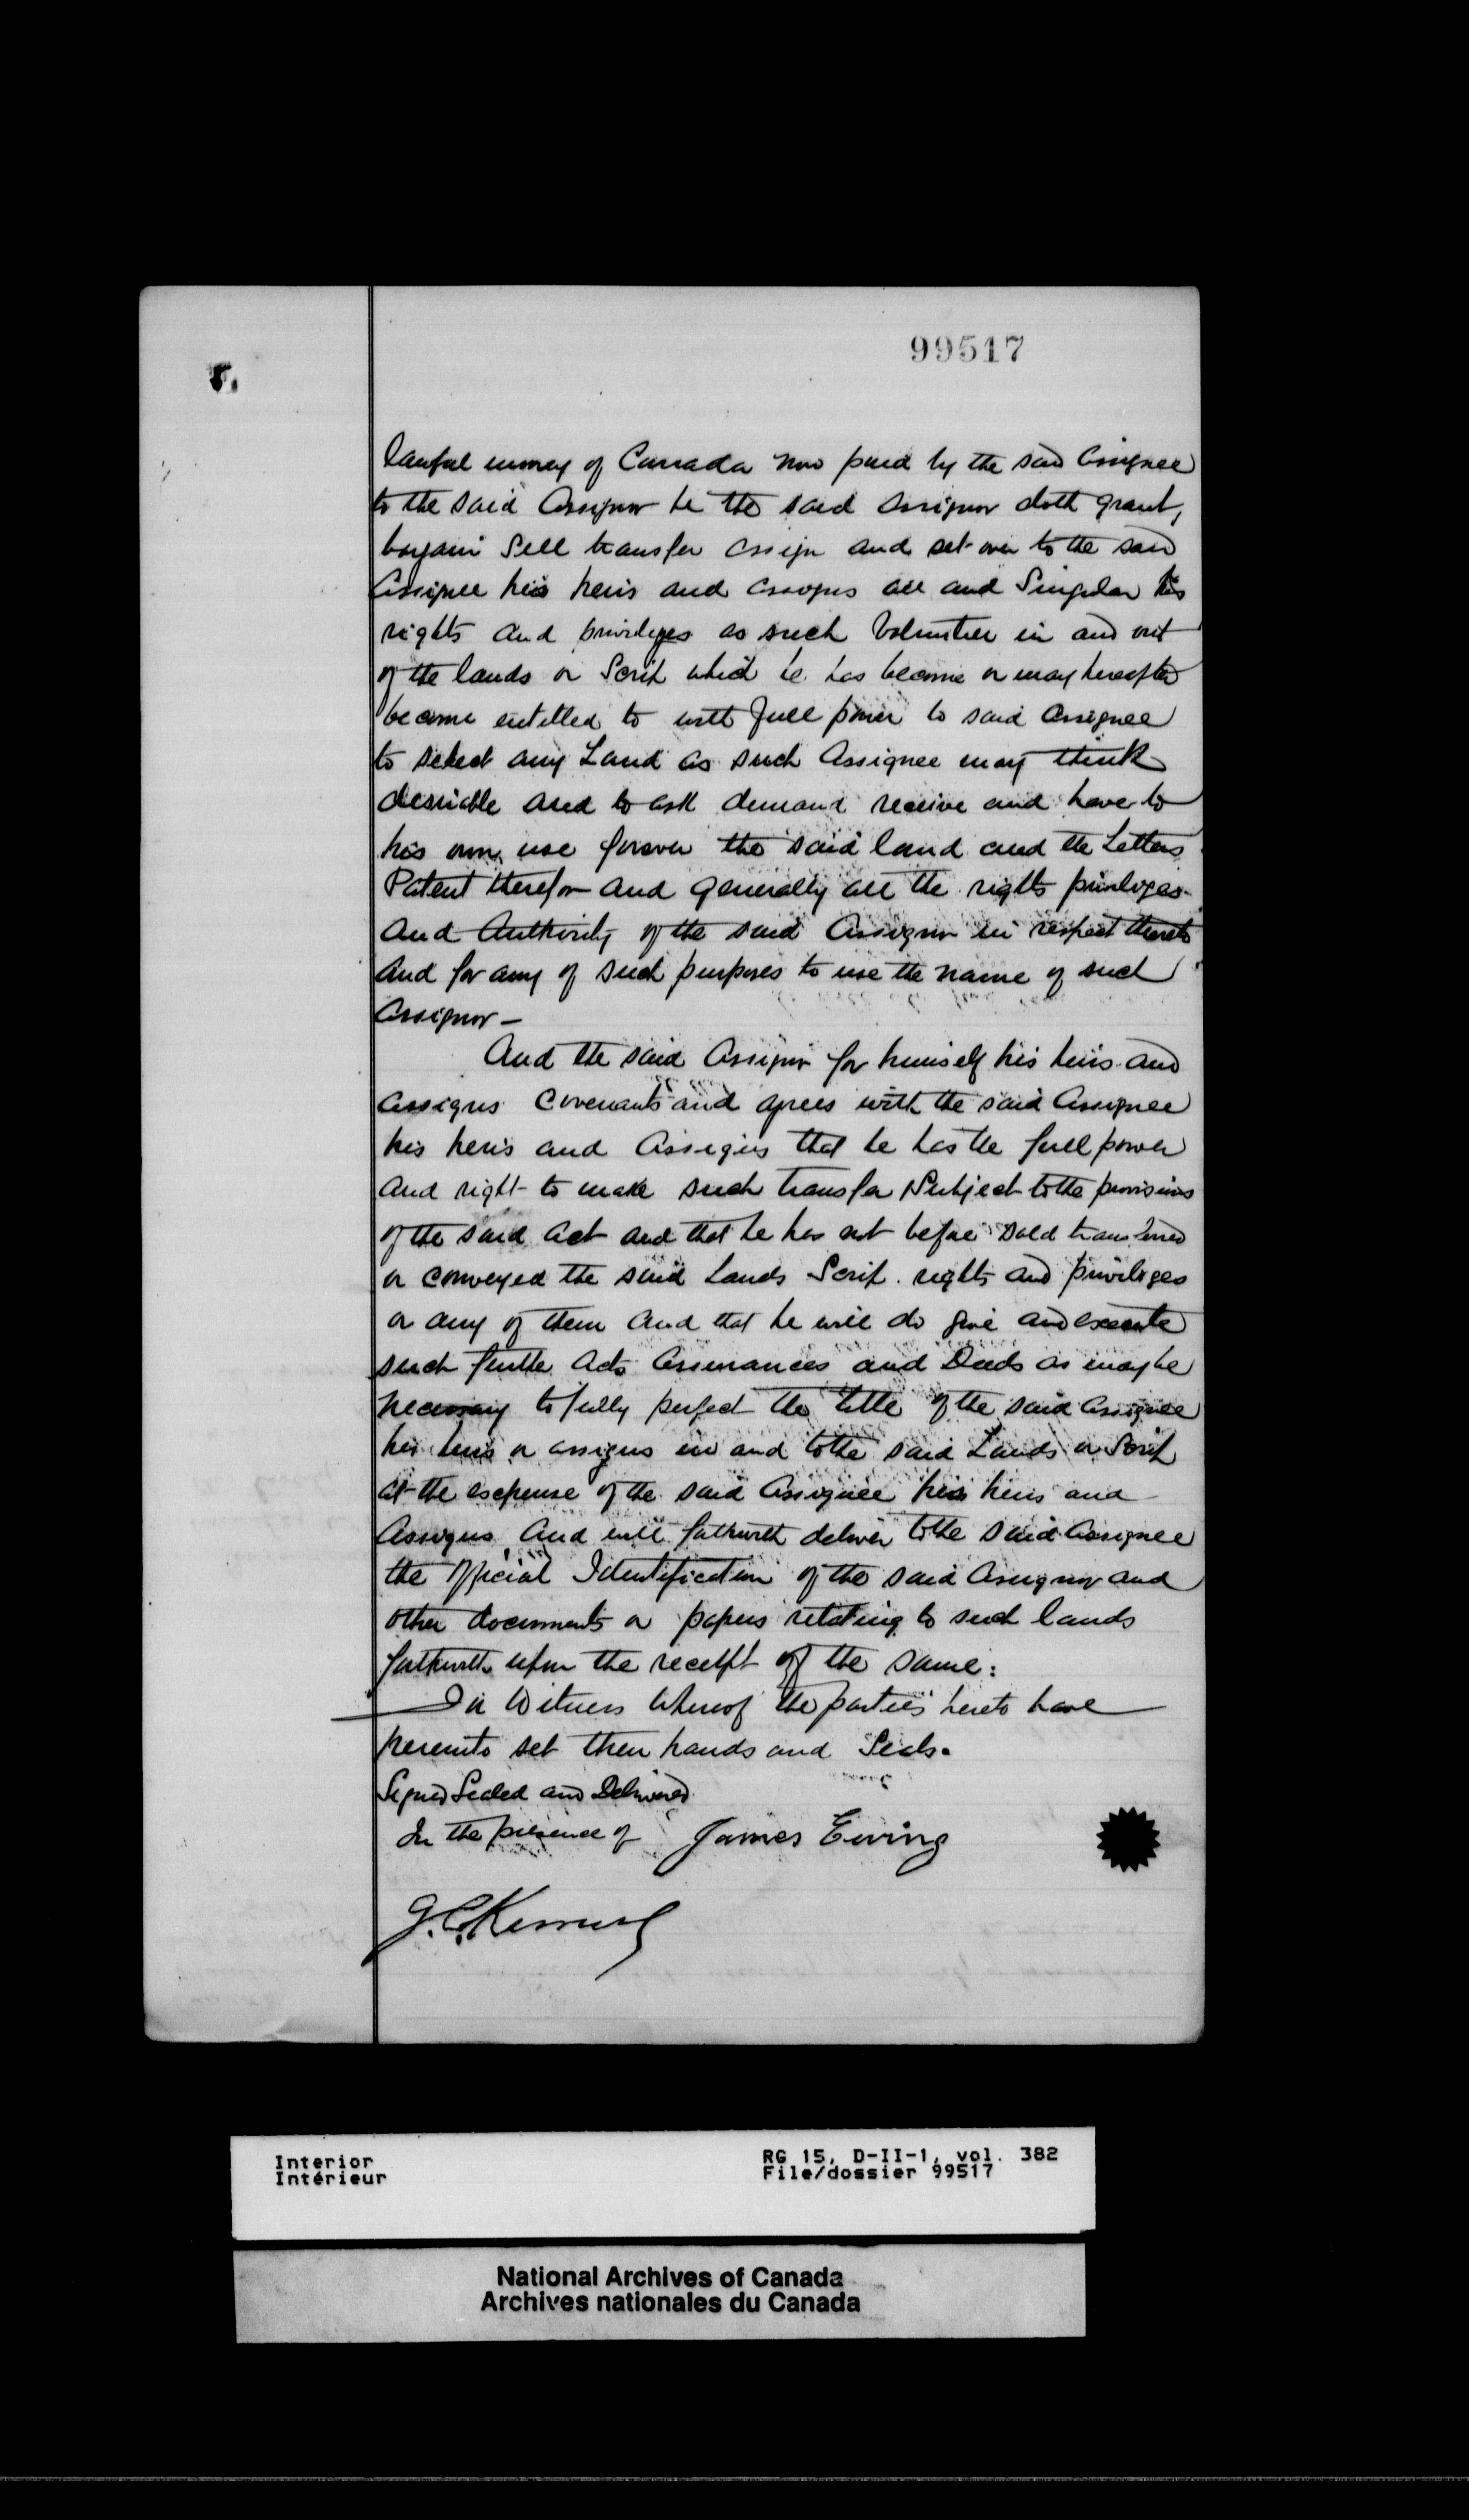 99517
lawful money of Canada now paid by the said Assignee
to the said Assignor he the said Assignor doth grant,
bargain Sell transfer assign and set over to the said
Assignee his heirs and assigns all and Singular his
rights and privileges as such Volunteer in and out
of the lands or Scrip which he has become or may hereafter
become entitled to with full power to said Assignee
to select any Land as such Assignee may think
desirable and to ask demand receive and have to
his own use forever the said land and the Letters
Patent therefor and generally all the rights privileges
and Authority of the said Assignor in respect thereto
and for any of such purposes to use the name of such
Assignor —
And the said Assignor for himself his heirs and
assigns Covenants and agrees with the said Assignee
his heirs and Assigns that he has the full power
and right to make such transfer Subject to the provisions
of the said Act and that he has not before sold transferred
or conveyed the said Lands Scrip rights and privileges
or any of them and that he will do give and execute
such further Acts Assurances and Deeds as may be
necessary to fully perfect the title of the said Assignee
his heirs or assigns in and to the said Lands or Scrip
at the expense of the said Assignee his heirs and
Assigns, and will forthwith deliver to the said Assignee
the Official Identification of the said Assignor and
other documents or papers relating to such lands
forthwith upon the receipt of the same:
In Witness Whereof the parties hereto have
hereunto set their hands and Seals.
Signed Sealed and Delivered
In the presence of James Ewing
J. C.
Interior
Intérieur
RG 15, D-II-1, vol. 382
File/dossier 99517
National Archives of Canada
Archives nationales du Canada